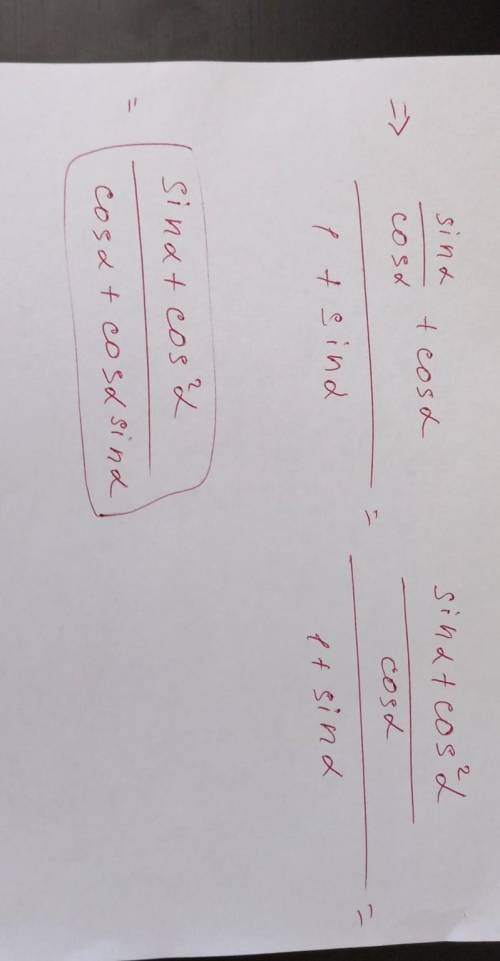 ⇒ (sinα/cosα + cosα)/(1 + sinα) = ((sinα + cos²α)/cosα)/(1 + sinα) =
= (sinα + cos²α)/(cosα + cosα sinα)